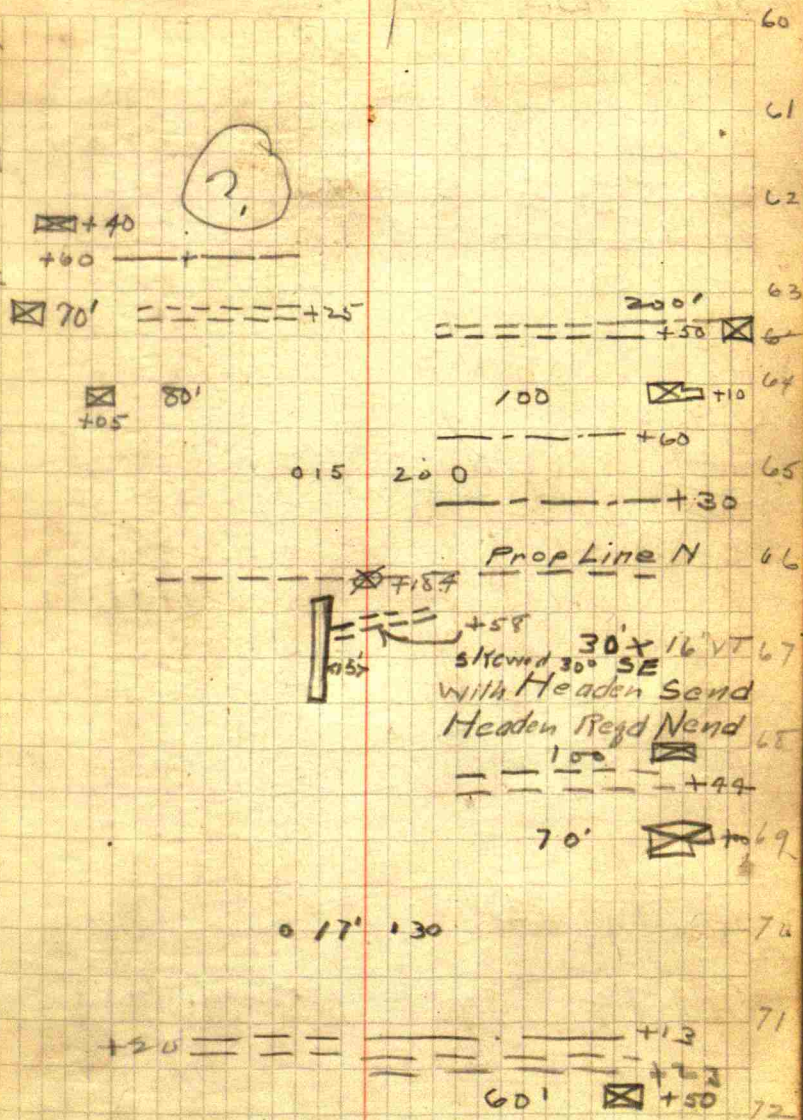 60
61
?
62
+40
+60
63
70' +25 200'
+50
64
80' 100 +10
+05
+60
015 200 65
+30
Prop Line N 66
+18.4
+58
30' x 16" VT 67
skewed 30° SE
15'
with Headen Send
Headen Reqd Nend
68
100
+44
70' +00 69
0 17' 130 70
71
+20 +13
60' +50
72